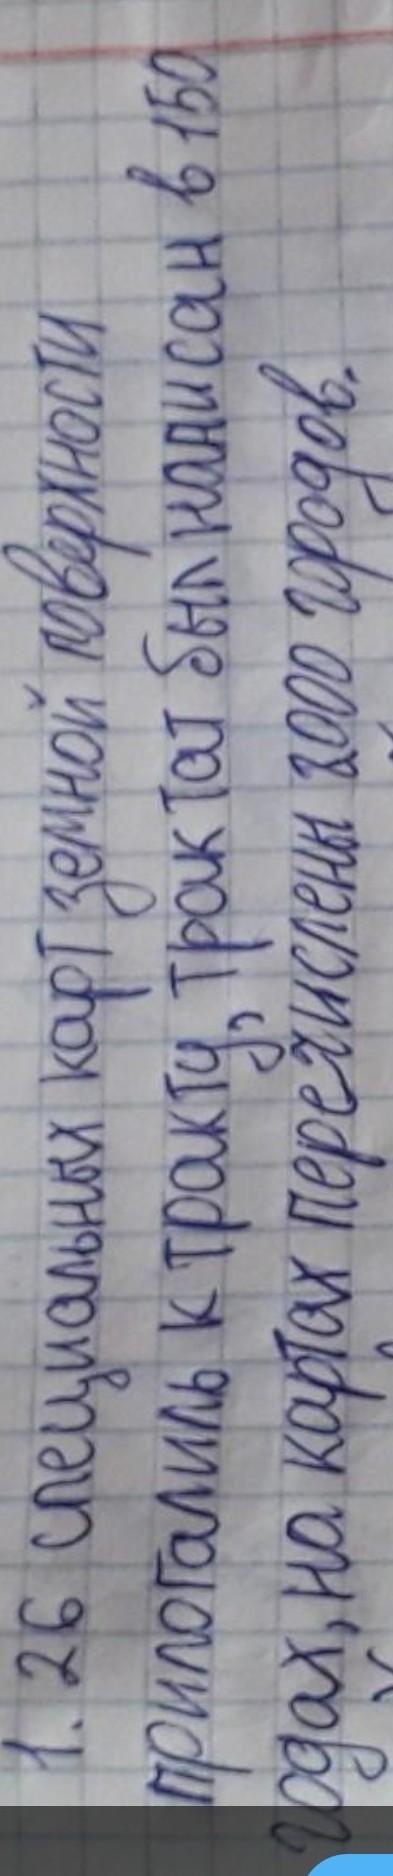 1. 26 специальных карт земной поверхности
прилогались к тракту, трактат был написан в 150
годах, на картах перечислены 2000 городов.